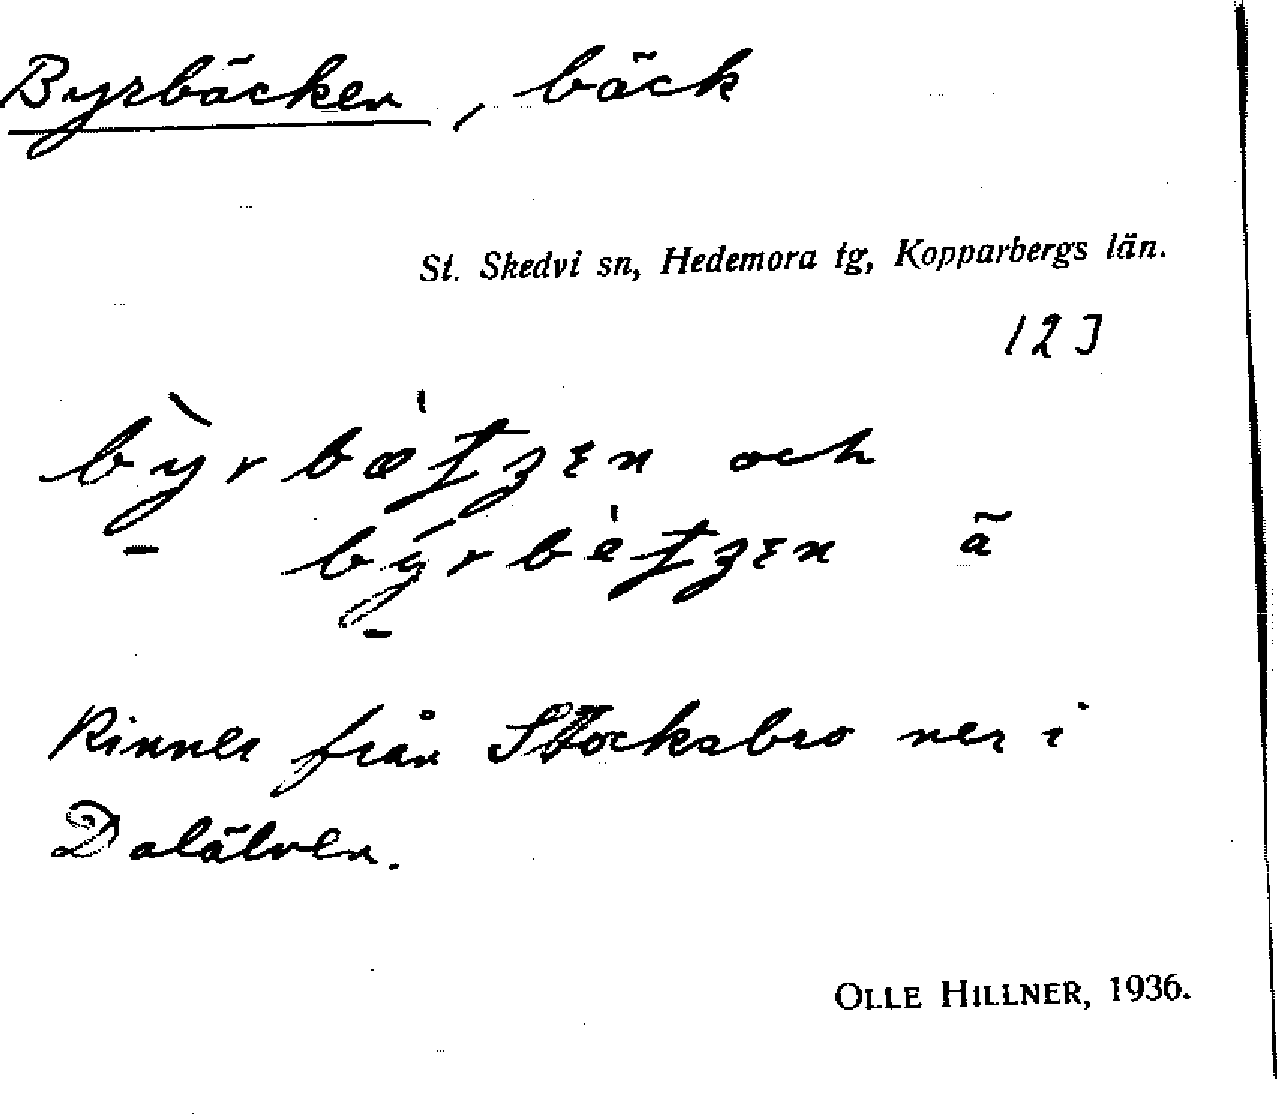 Byrbäcken, bäck
St. Skedvi sn, Hedemora tg, Kopparbergs län.
12 J
och
ã
Rinner från Stocksbro ner i
Dalälven.
OLLE HILLNER, 1936.